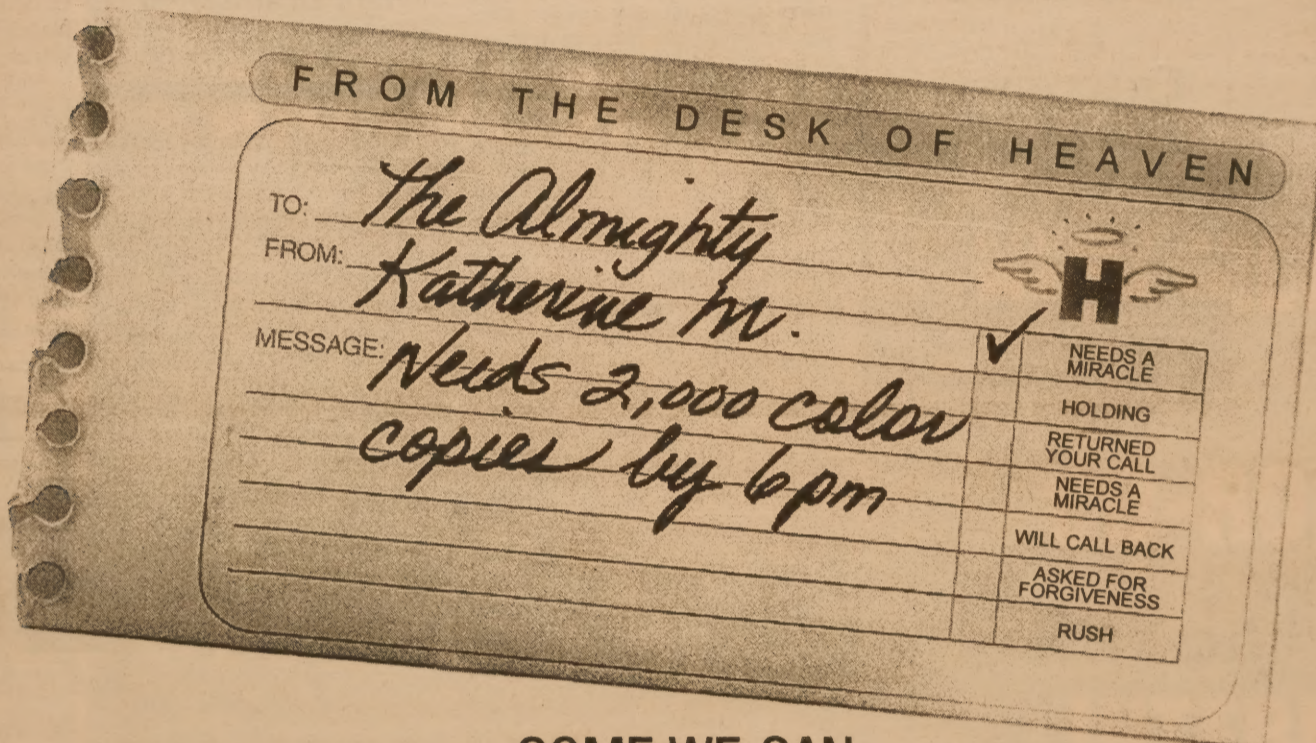 FROM THE DESK OF HEAVEN
TO: The Almighty
FROM: Katherine M.
MESSAGE: Needs 2,000 color
copies by 6pm
H
✓ NEEDS A
MIRACLE
HOLDING
RETURNED
YOUR CALL
NEEDS A
MIRACLE
WILL CALL BACK
ASKED FOR
FORGIVENESS
RUSH
SOME WE CAN